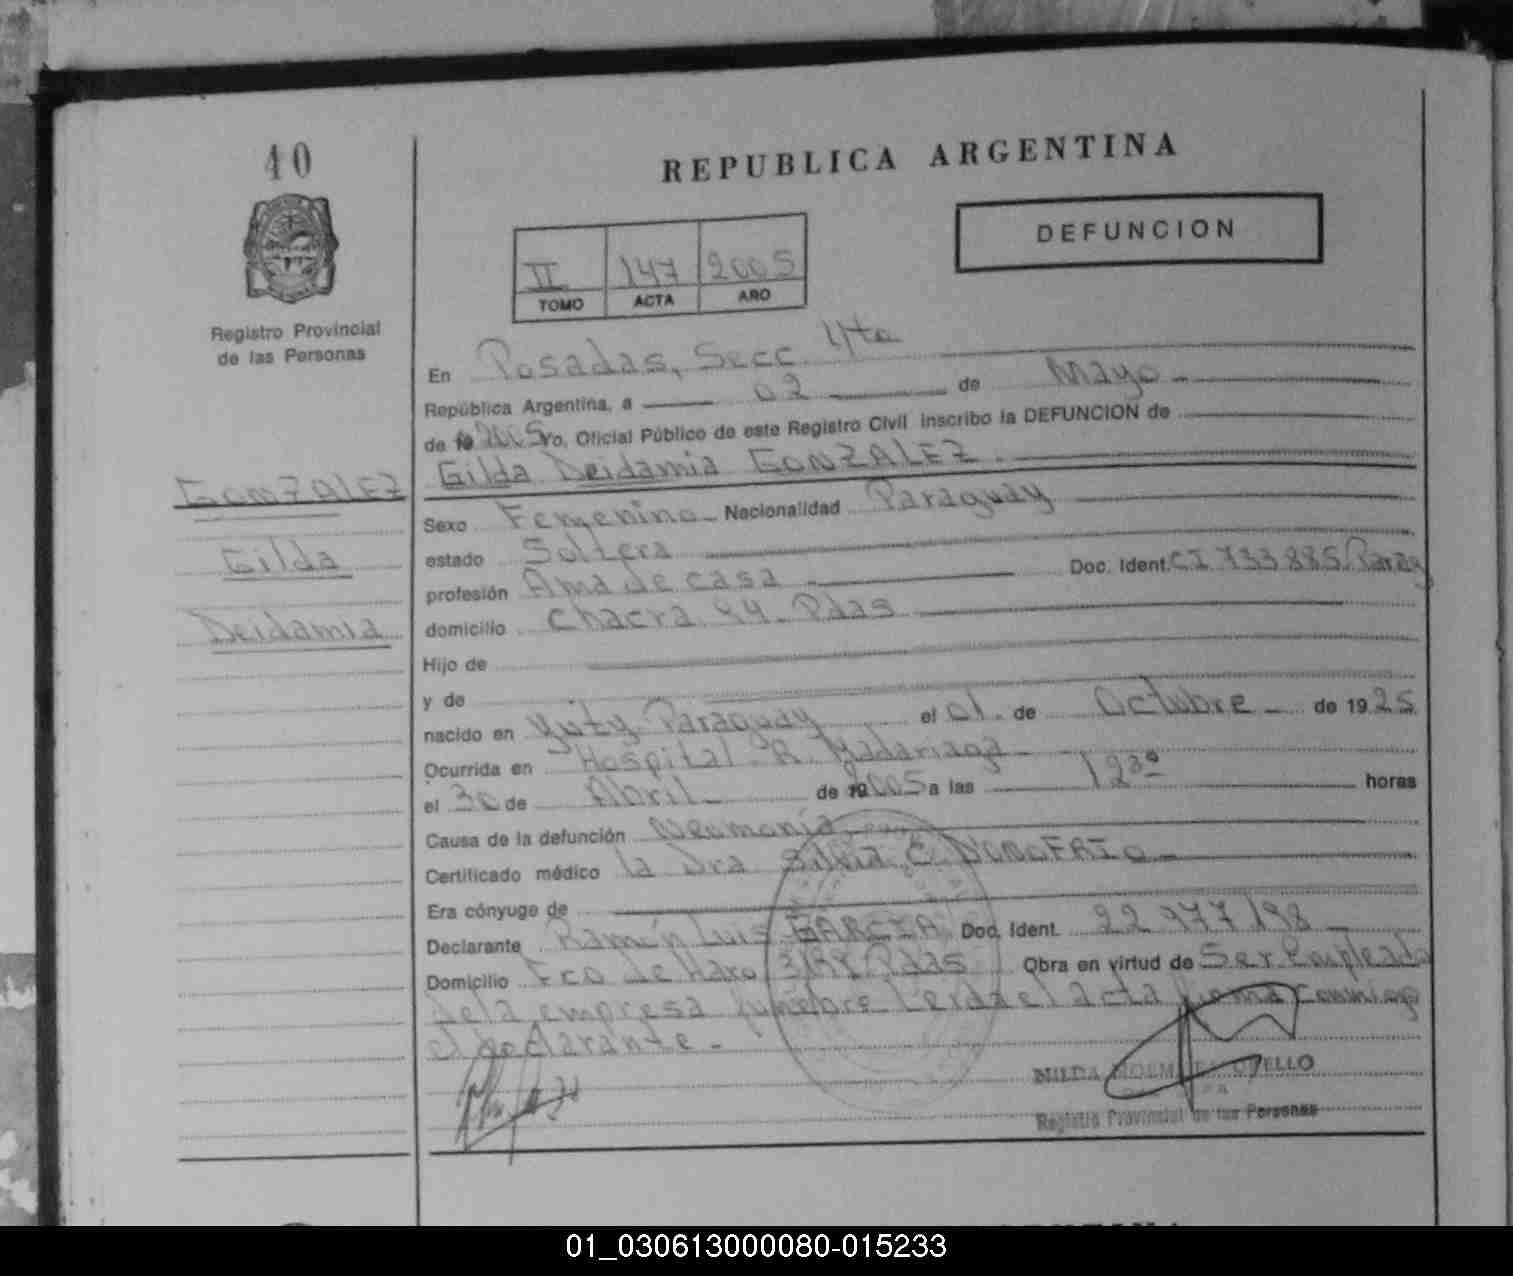 10
REPUBLICA ARGENTINA
DEFUNCION
II 147 2005
TOMO ACTA AÑO
Registro Provincial
de las Personas
En Posadas, Secc. 4ta
República Argentina, a 02 de Mayo
de 19 2005 Yo, Oficial Público de este Registro Civil inscribo la DEFUNCION de
Gilda Deidamia GONZALEZ.
GONZALEZ
Gilda
Deidamia
Sexo Femenino Nacionalidad Paraguay
estado Soltera
profesión Ama de casa Doc. Ident. CI 733.885. Parag
domicilio Chacra 94. Pdas
Hijo de
y de
nacido en Yuty Paraguay el 01. de Octubre de 1925
Ocurrida en Hospital R. Madariaga
el 30 de Abril de 2005 a las 12 30 horas
Causa de la defunción Neumonía
Certificado médico la Dra Silvia C. DONOFRIO
Era cónyuge de
Declarante Ramón Luis GARCIA Doc. Ident. 22 977 198
Domicilio Fco de Haro Pdas Obra en virtud de Ser empleado
de la empresa fúnebre Leída el acta firma conmigo
el declarante.
Registro Provincial de las Personas
01_030613000080-015233